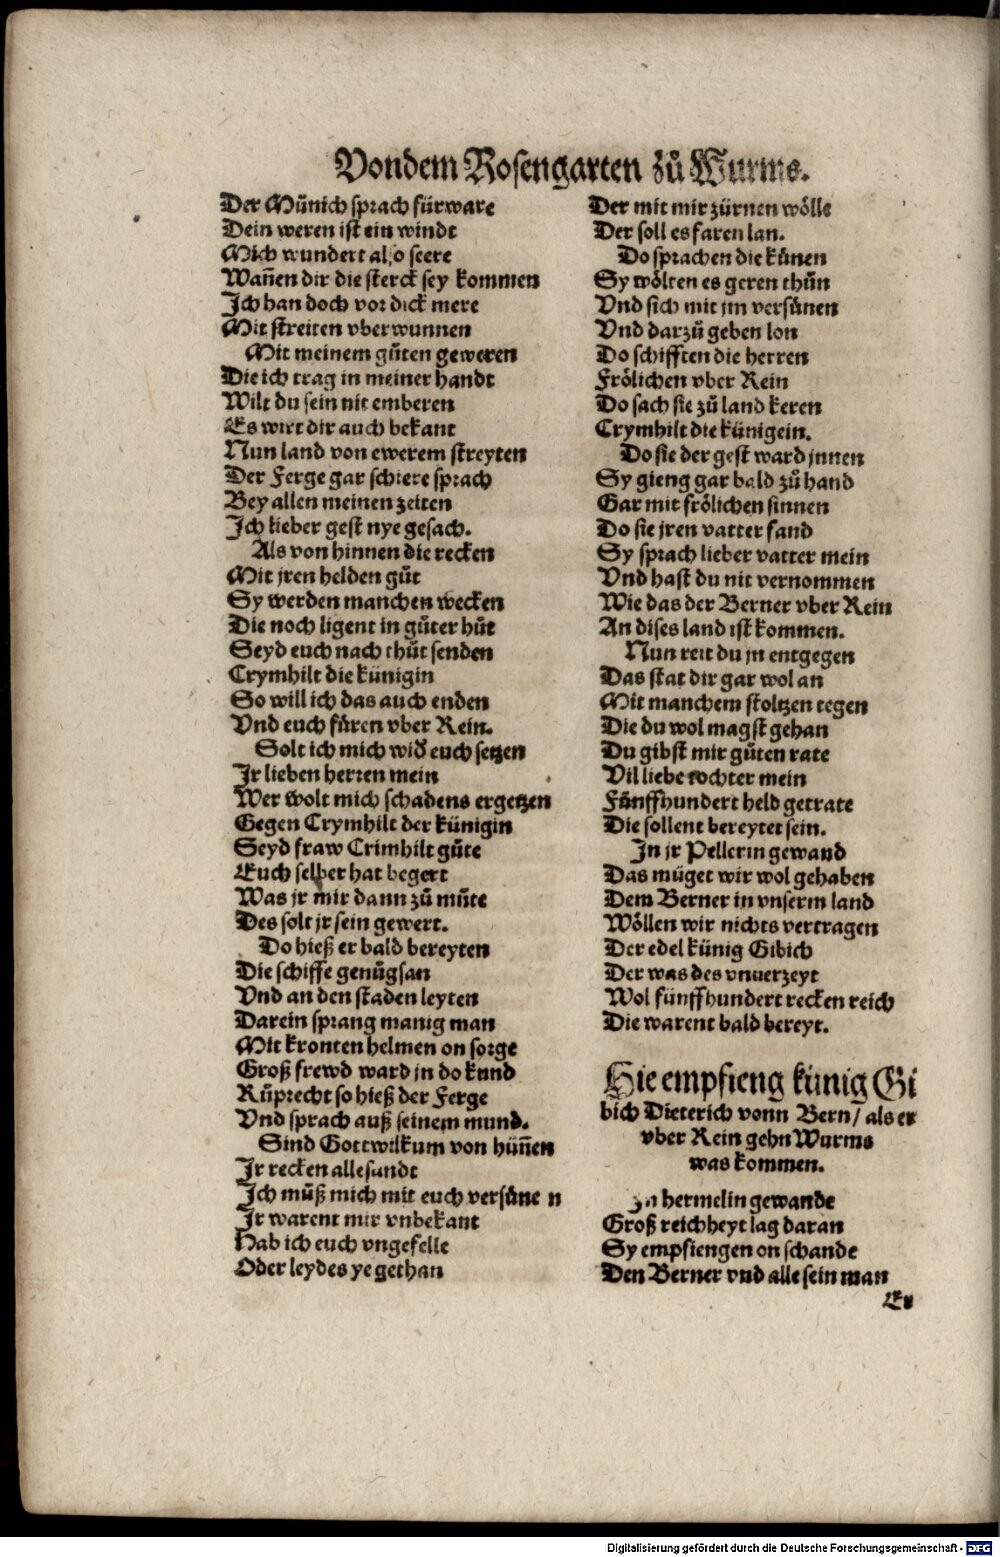 Vondem Rosengarten zů Wurms.
Der Münich sprach fürware
Dein weren ist ein windt
Mich wundert also seere
Wañen dir die sterck sey kommen
Ich han doch vor dick mere
Mit streiten vberwunnen
Mit meinem gůten geweren
Die ich trag in meiner handt
Wilt du sein nit emberen
Es wirt dir auch bekant
Nun land von ewerem streyten
Der Ferge gar schiere sprach
Bey allen meinen zeiten
Ich lieber gest nye gesach.
Als von hinnen die recken
Mit jren helden gůt
Sy werden manchen wecken
Die noch ligent in gůter hůt
Seyd euch nach thůt senden
Crymhilt die künigin
So will ich das auch enden
Vnd euch füren vber Rein.
Solt ich mich wid euch setzen
Ir lieben herren mein
Wer wolt mich schadens ergetzen
Gegen Crymhilt der künigin
Seyd fraw Crimhilt gůte
Euch selber hat begert
Was jr mir dann zů můte
Des solt jr sein gewert.
Do hieß er bald bereyten
Die schiffe genůgsan
Vnd an den staden leyten
Darein sprang manig man
Mit kronten helmen on sorge
Groß frewd ward jn do kund
Růprecht so hieß der Ferge
Vnd sprach auß seinem mund.
Sind Gottwilkum von hüñen
Ir recken alle sandt
Ich můß mich mit euch versüne n
Ir warent mir vnbekant
Hab ich euch vngefelle
Oder leydes ye gethan
Der mit mir zürnen wölle
Der soll es faren lan.
Do sprachen die künen
Sy wölten es geren thůn
Vnd sich mit jm versünen
Vnd darzů geben lon
Do schifften die herren
Frölichen vber Rein
Do sach sie zů land keren
Crymhilt die künigein.
Do sie der gest ward jnnen
Sy gieng gar bald zů hand
Gar mit frölichen sinnen
Do sie jren vatter fand
Sy sprach lieber vatter mein
Vnd hast du nit vernommen
Wie das der Berner vber Rein
An dises land ist kommen.
Nun reit du jn entgegen
Das stat dir gar wol an
Mit manchem stoltzen tegen
Die du wol magst gehan
Du gibst mir gůten rate
Vil liebe tochter mein
Fünffhundert held getrate
Die sollent bereytet sein.
In jr Pellerin gewand
Das müget wir wol gehaben
Dem Berner in vnserm land
Wöllen wir nichts vertragen
Der edel künig Gibich
Der was des vnuerzeyt
Wol fünffhundert recken reich
Die warent bald bereyt.
Hie empfieng künig Gi
bich Dieterich vonn Bern / als er
vber Rein gehn Wurms
was kommen.
In hermelin gewande
Groß reichheyt lag daran
Sy empfiengen on schande
Den Berner vnd alle sein man
Er
Digitalisierung gefördert durch die Deutsche Forschungsgemeinschaft - DFG